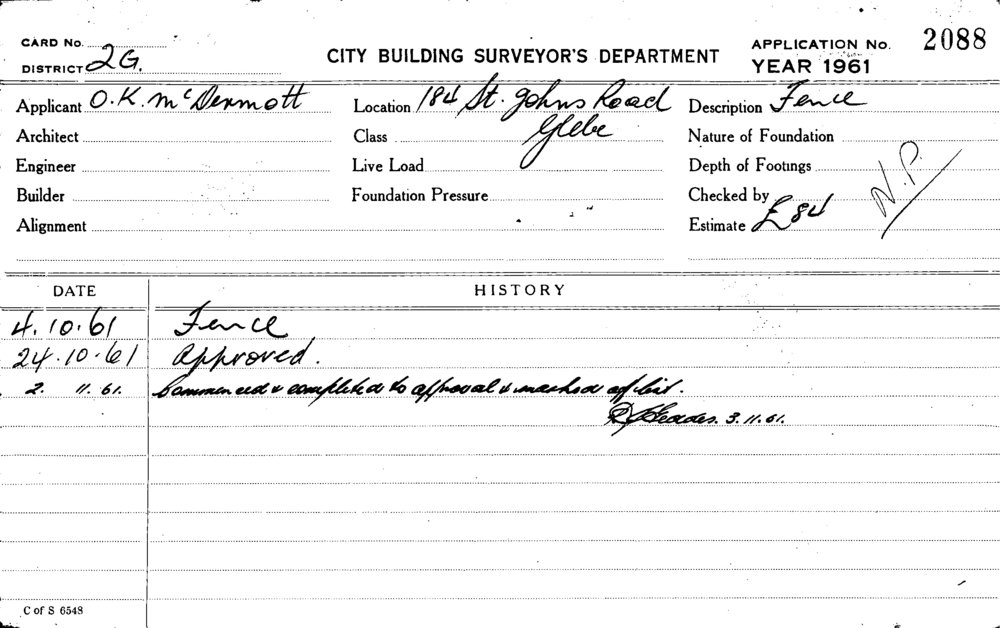 CARD No.
DISTRICT 2G.
CITY BUILDING SURVEYOR'S DEPARTMENT
APPLICATION No. 2088
YEAR 1961
Applicant O.K. McDermott
Location 184 St. Johns Road
Glebe
Description Fence
Architect
Class
Nature of Foundation
Engineer
Live Load
Depth of Footings
Builder
Foundation Pressure
Checked by
Alignment
Estimate £84
N.P.
DATE
HISTORY
4.10.61 Fence
24.10.61 Approved.
2. 11.61. Commenced & completed to approval & marked off list.
3.11.61.
C of S 6548